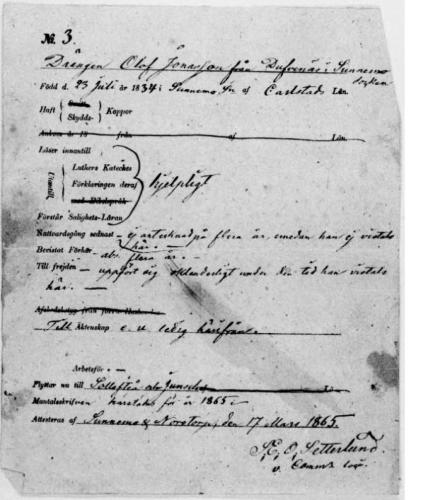 № 3.
Drängen Olof Jonasson från i Sunnemo
socken
Född d. 23 Juli år 1834 i Sunnemo, sn af Carlstads Län.
Haft Skydds- Koppor
Ankom år 18 från af Län.
Läser innantill
Utantill
Luthers Kateches
Förklaringen deraf
med Bibelspråk
hjelpligt
Förstår Salighets-Läran
Nattvardsgång sednast - ej antecknad på flera år, emedan han ej vistats
här. -
Bevistat Förhör - flera år. -
Till frejden - uppfört sig oklanderligt under den tid han vistats
här. -
Till Äktenskap e. v. ledig härifrån.
Arbetsför -
Flyttar nu till Sollefteå
Mantalsskrifven härstädes för år 1865. -
Attesteras af Sunnemo & Norstorp, den 17 Mars 1865.
Setterlund
v. Comm